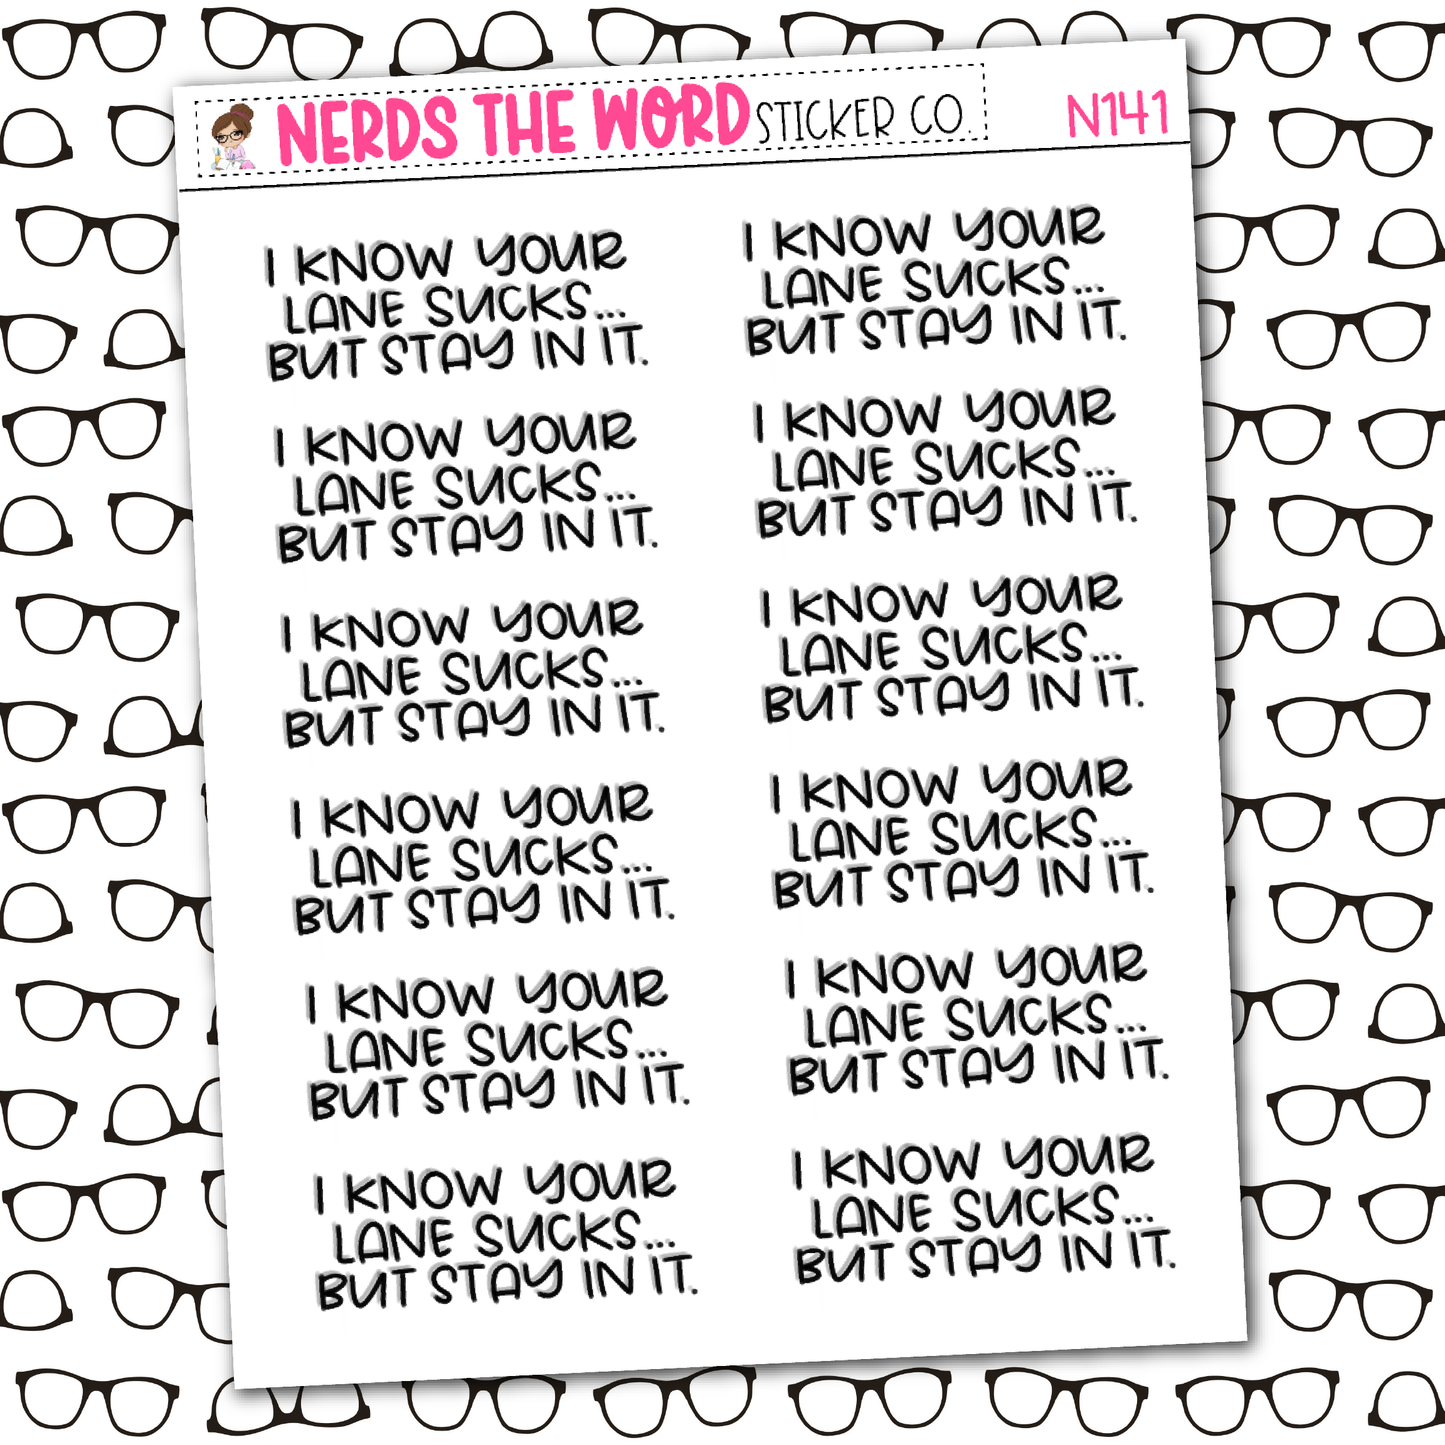 NERDS THE WORD STICKER CO.
N141
I KNOW YOUR
LANE SUCKS...
BUT STAY IN IT.
I KNOW YOUR
LANE SUCKS...
BUT STAY IN IT.
I KNOW YOUR
LANE SUCKS...
BUT STAY IN IT.
I KNOW YOUR
LANE SUCKS...
BUT STAY IN IT.
I KNOW YOUR
LANE SUCKS...
BUT STAY IN IT.
I KNOW YOUR
LANE SUCKS...
BUT STAY IN IT.
I KNOW YOUR
LANE SUCKS...
BUT STAY IN IT.
I KNOW YOUR
LANE SUCKS...
BUT STAY IN IT.
I KNOW YOUR
LANE SUCKS...
BUT STAY IN IT.
I KNOW YOUR
LANE SUCKS...
BUT STAY IN IT.
I KNOW YOUR
LANE SUCKS...
BUT STAY IN IT.
I KNOW YOUR
LANE SUCKS...
BUT STAY IN IT.